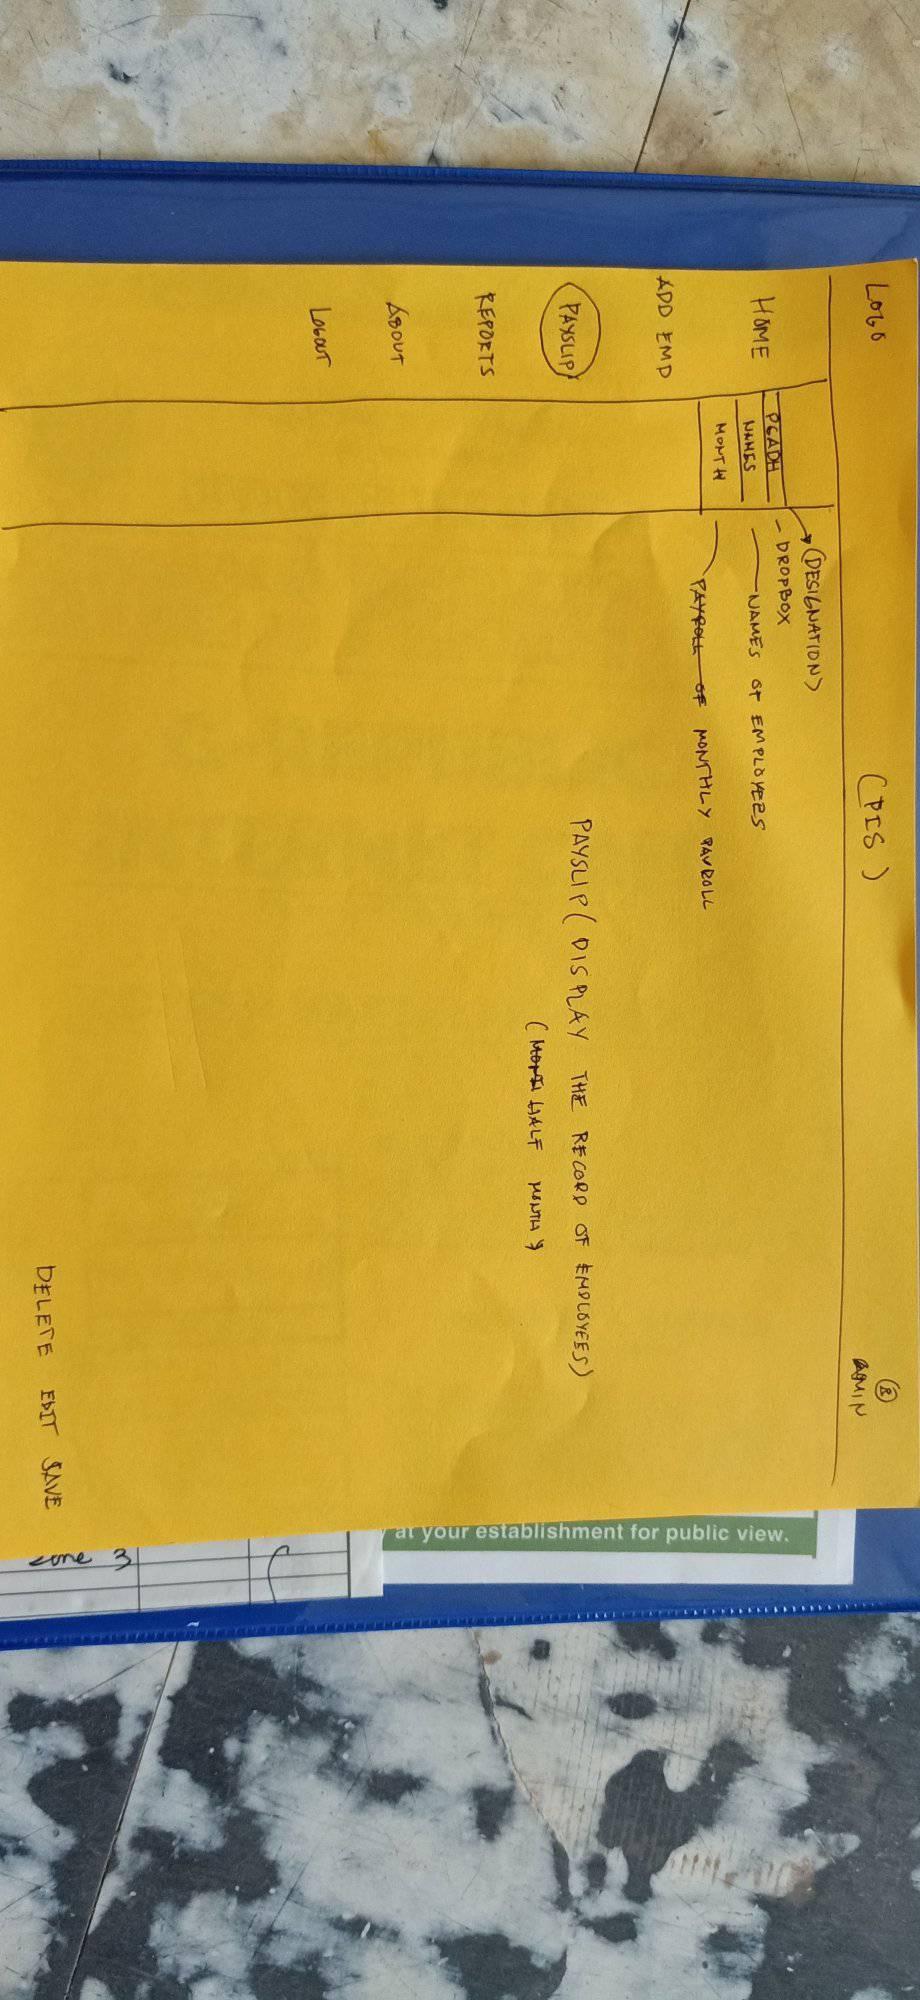 LOGO
(PIS)
ADMIN
HOME
ADD EMP
PAYSLIP
REPORTS
ABOUT
LOGOUT
PGADH
NAMES
MONTH
(DESIGNATION)
DROPBOX
NAMES OF EMPLOYEES
PAYROLL OF MONTHLY PAYROLL
PAYSLIP (DISPLAY THE RECORD OF EMPLOYEES)
(MONTH HALF MONTH)
DELETE EDIT SAVE
at your establishment for public view.
zone 3